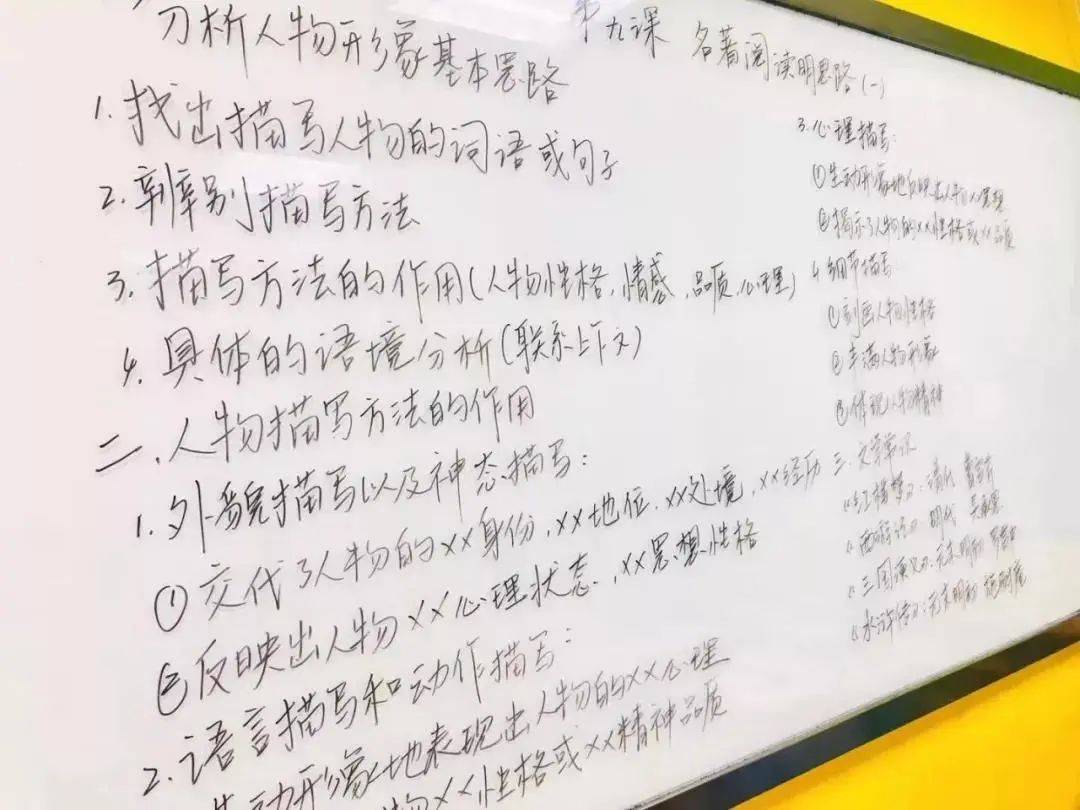 分析人物形象基本思路
1.找出描写人物的词语或句子
2.辨别描写方法
3.描写方法的作用(人物性格,情感,品质,心理)
4.具体的语境分析(联系上下文)
二.人物描写方法的作用
1.外貌描写以及神态描写:
①交代了人物的××身份,××地位.××处境,××经历
②反映出人物××心理状态,××思想性格
2.语言描写和动作描写:
生动形象地表现出人物的××心理
物××性格或××精神品质
第九课 名著阅读明思路(一)
3.心理描写:
①生动形象地反映出人物××思想
②揭示了人物的××性格或××品质
4.细节描写:
①刻画人物性格
②丰满人物形象
③体现人物精神
三.文学常识
《红楼梦》:清代 曹雪芹
《西游记》:明代 吴承恩
《三国演义》:元末明初 罗贯中
《水浒传》:元末明初 施耐庵